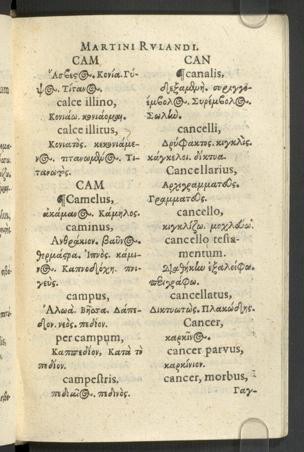 MARTINI RVLANDI.
CAM
Ἄσβεςος. Κονία. Γύ-
ψος. Τίτανος.
calce illino,
Κονιάω. κονιάομαι.
calce illitus,
Κονιατὸς. κεκονιαμέ-
νος.
τανωτὸς.
CAM
¶Camelus,
Κάμηλος.
caminus,
Ἀνθράκιον. βαῦνος.
θερμάςρα. Ἰπνὸς. κάμι-
νος. Καπνοδόχη. πνι-
γεὺς.
campus,
Ἀλωά. Δάπε-
δον. πεδίον.
per campum,
Καππεδίον. Κατὰ τὸ
πεδίον.
campestris.
πεδιακὸς. πεδινὸς.
CAN
¶canalis,
Σωλὼ.
cancelli,
Δρύφακτος. κιγκλὶς.
κάγκελοι. δίκτυα.
Cancellarius,
Ἀρχιγραμματεὺς.
Γραμματεὺς.
cancello,
κιγκλίζω. μοχλεύω.
cancello testa-
mentum.
Διαθήκην ἐξαλείφω.
περιγράφω.
cancellatus,
Δικτυωτὸς. Πλακώδης.
Cancer,
καρκῖνος.
cancer parvus,
καρκίνιον.
cancer, morbus,
Γαγ-